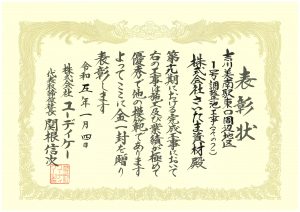 表彰状
吉川美南駅東口周辺地区
1号調整池工事(その2)
株式会社さいたま資材殿
第十九期における完成工事において
右の工事は施工及び業績が極めて
優秀で他の模範であります
よってここに金一封を贈り
表彰します
令和五年一月四日
株式会社ユーディケー
代表取締役社長 関根信次